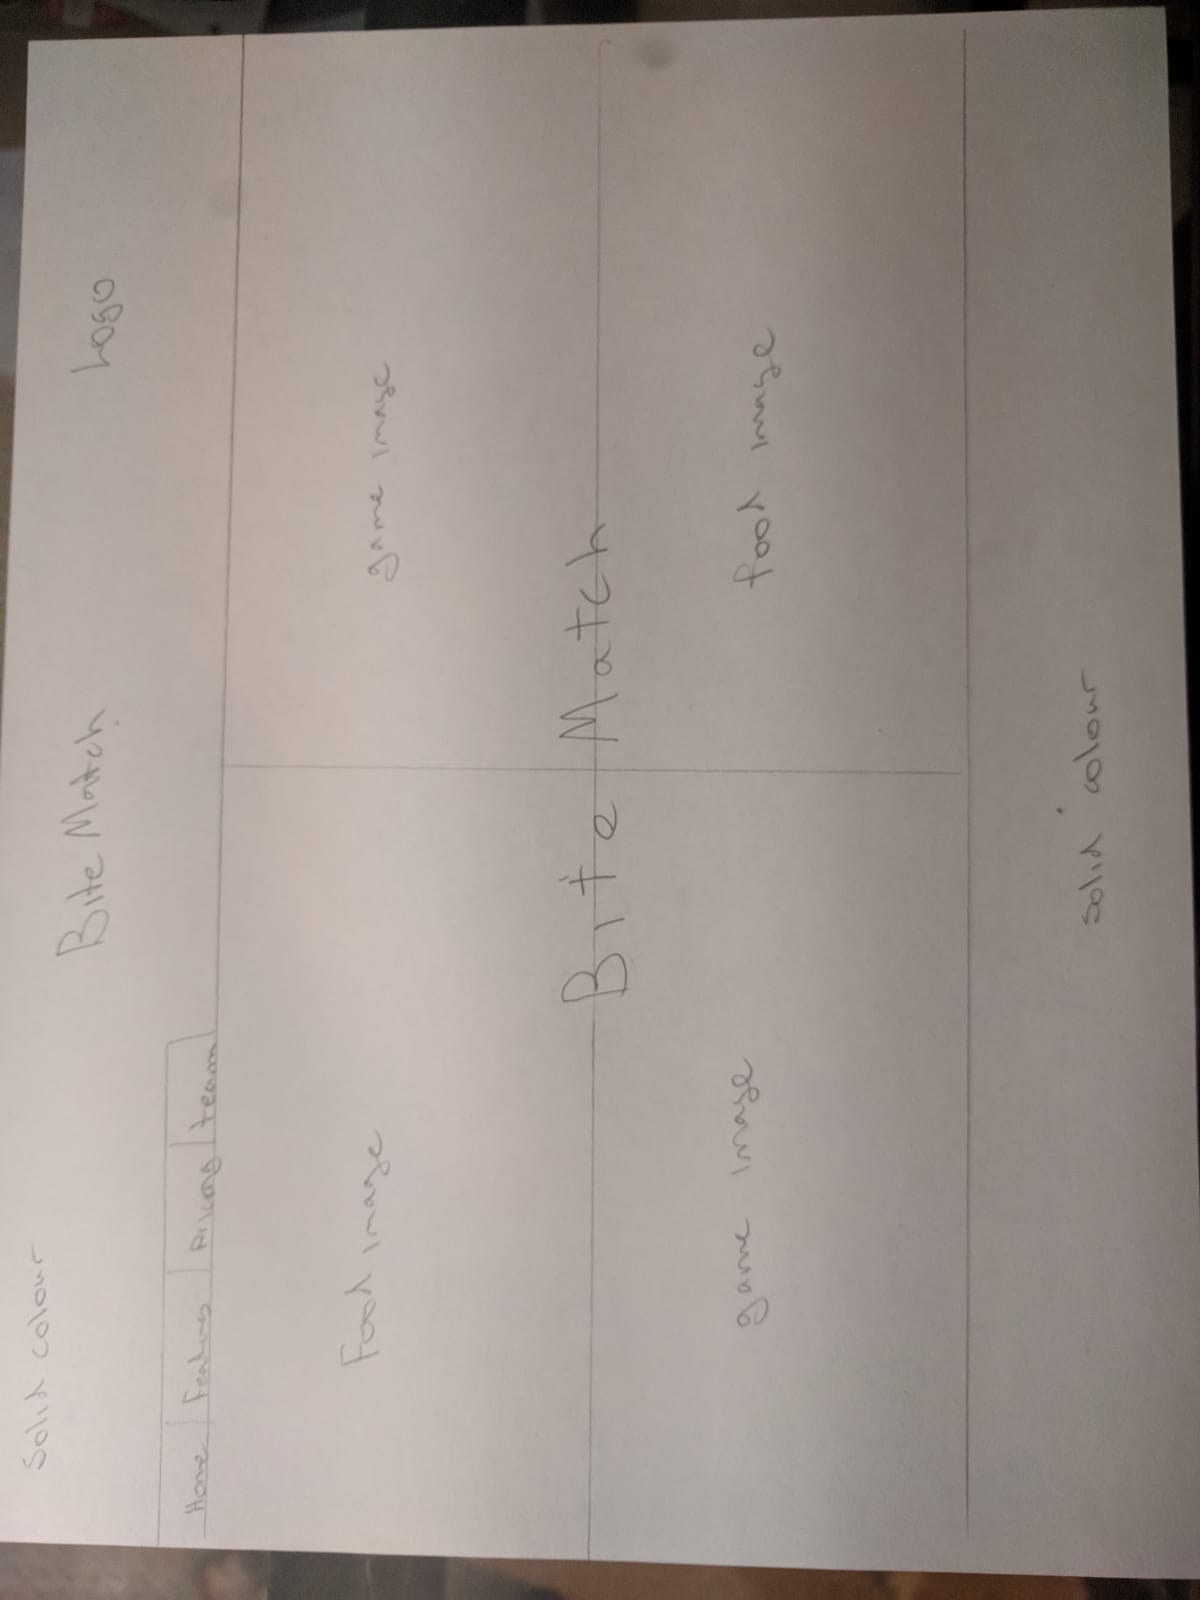 Solid colour
Bite Match.
Logo
Home Features Pricing team
Food image
game image
Bite Match
game image
food image
solid colour